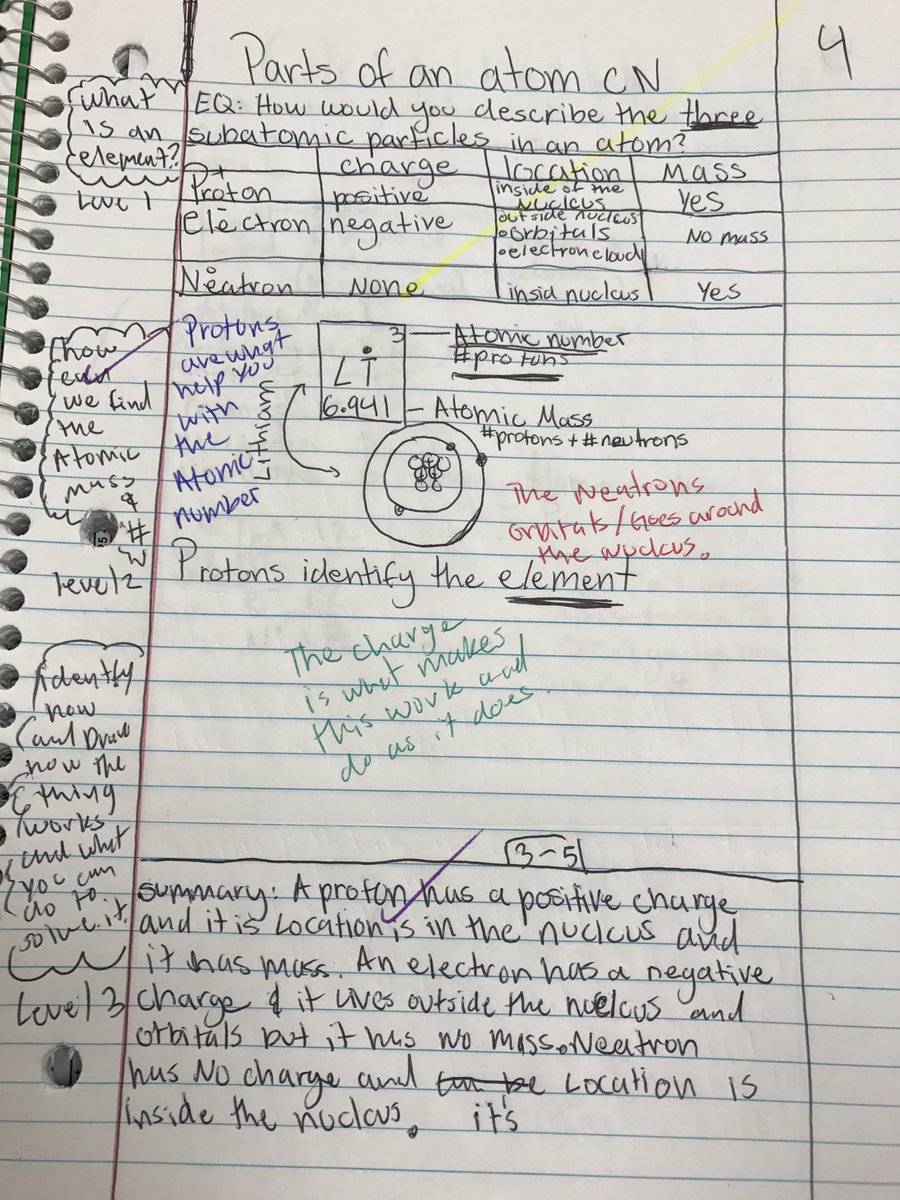 4
Parts of an atom CN
EQ: How would you describe the three
subatomic particles in an atom?
What
is an
element?
Level 1
charge location Mass
P+
Proton positive inside of the nucleus Yes
Electron negative outside nucleus
• orbitals
• electron cloud
No mass
Neatron None insid nucleus Yes
how
even
we find
the
Atomic
mass
&
#
Level 2
Protons
are what
help you
with
the
Atomic
number
Lithium
3
Li
6.941
Atomic number
#protons
Atomic Mass
#protons + #neutrons
The Neatrons
orbitals/Goes around
the nuclcus.
Protons identify the element
The charge
is what makes
this work and
do as it does.
identfy
how
and Draw
how the
thing
works
and what
you can
do to
solve it.
Level 3
3-5
summary: A proton has a positive charge
and it is Location is in the nuclcus and
it has mass. An electron has a negative
charge & it Lives outside the nuclcus and
orbitals but it has no mass. Neatron
has No charge and can be Location is
inside the nuclcus. it's